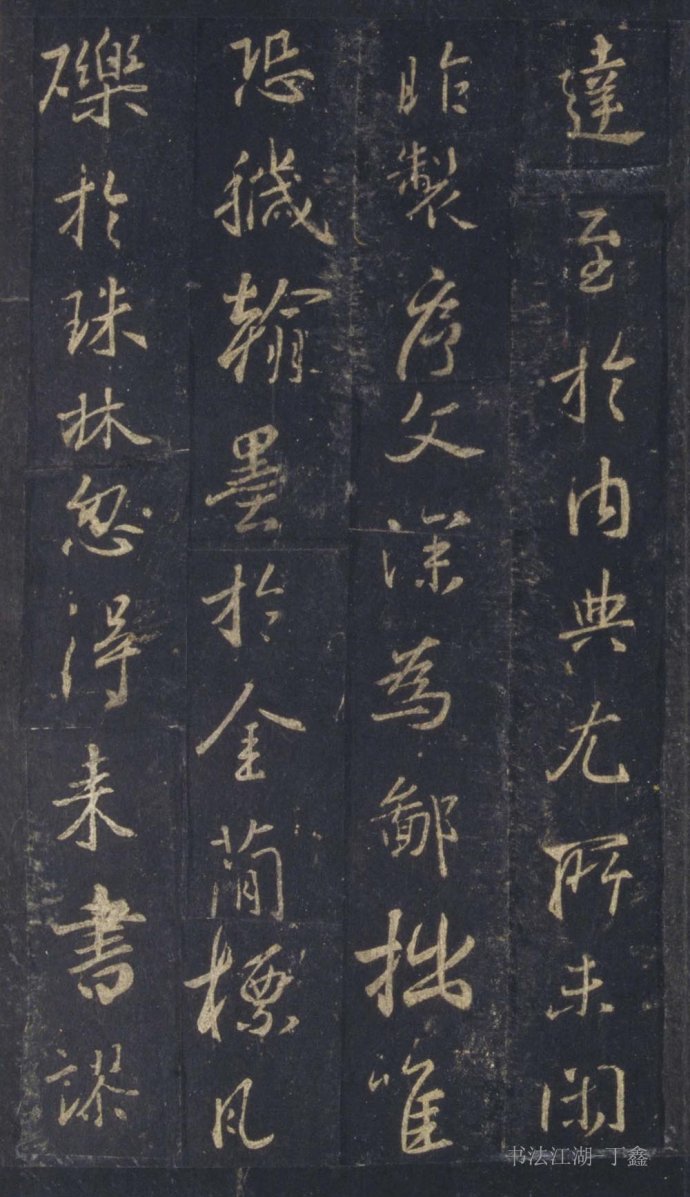 達至於内典尤所未閑
昨製序文深為鄙拙唯
恐穢翰墨於金蕳標凡
礫於珠林忽得来書謬
书法江湖-丁鑫